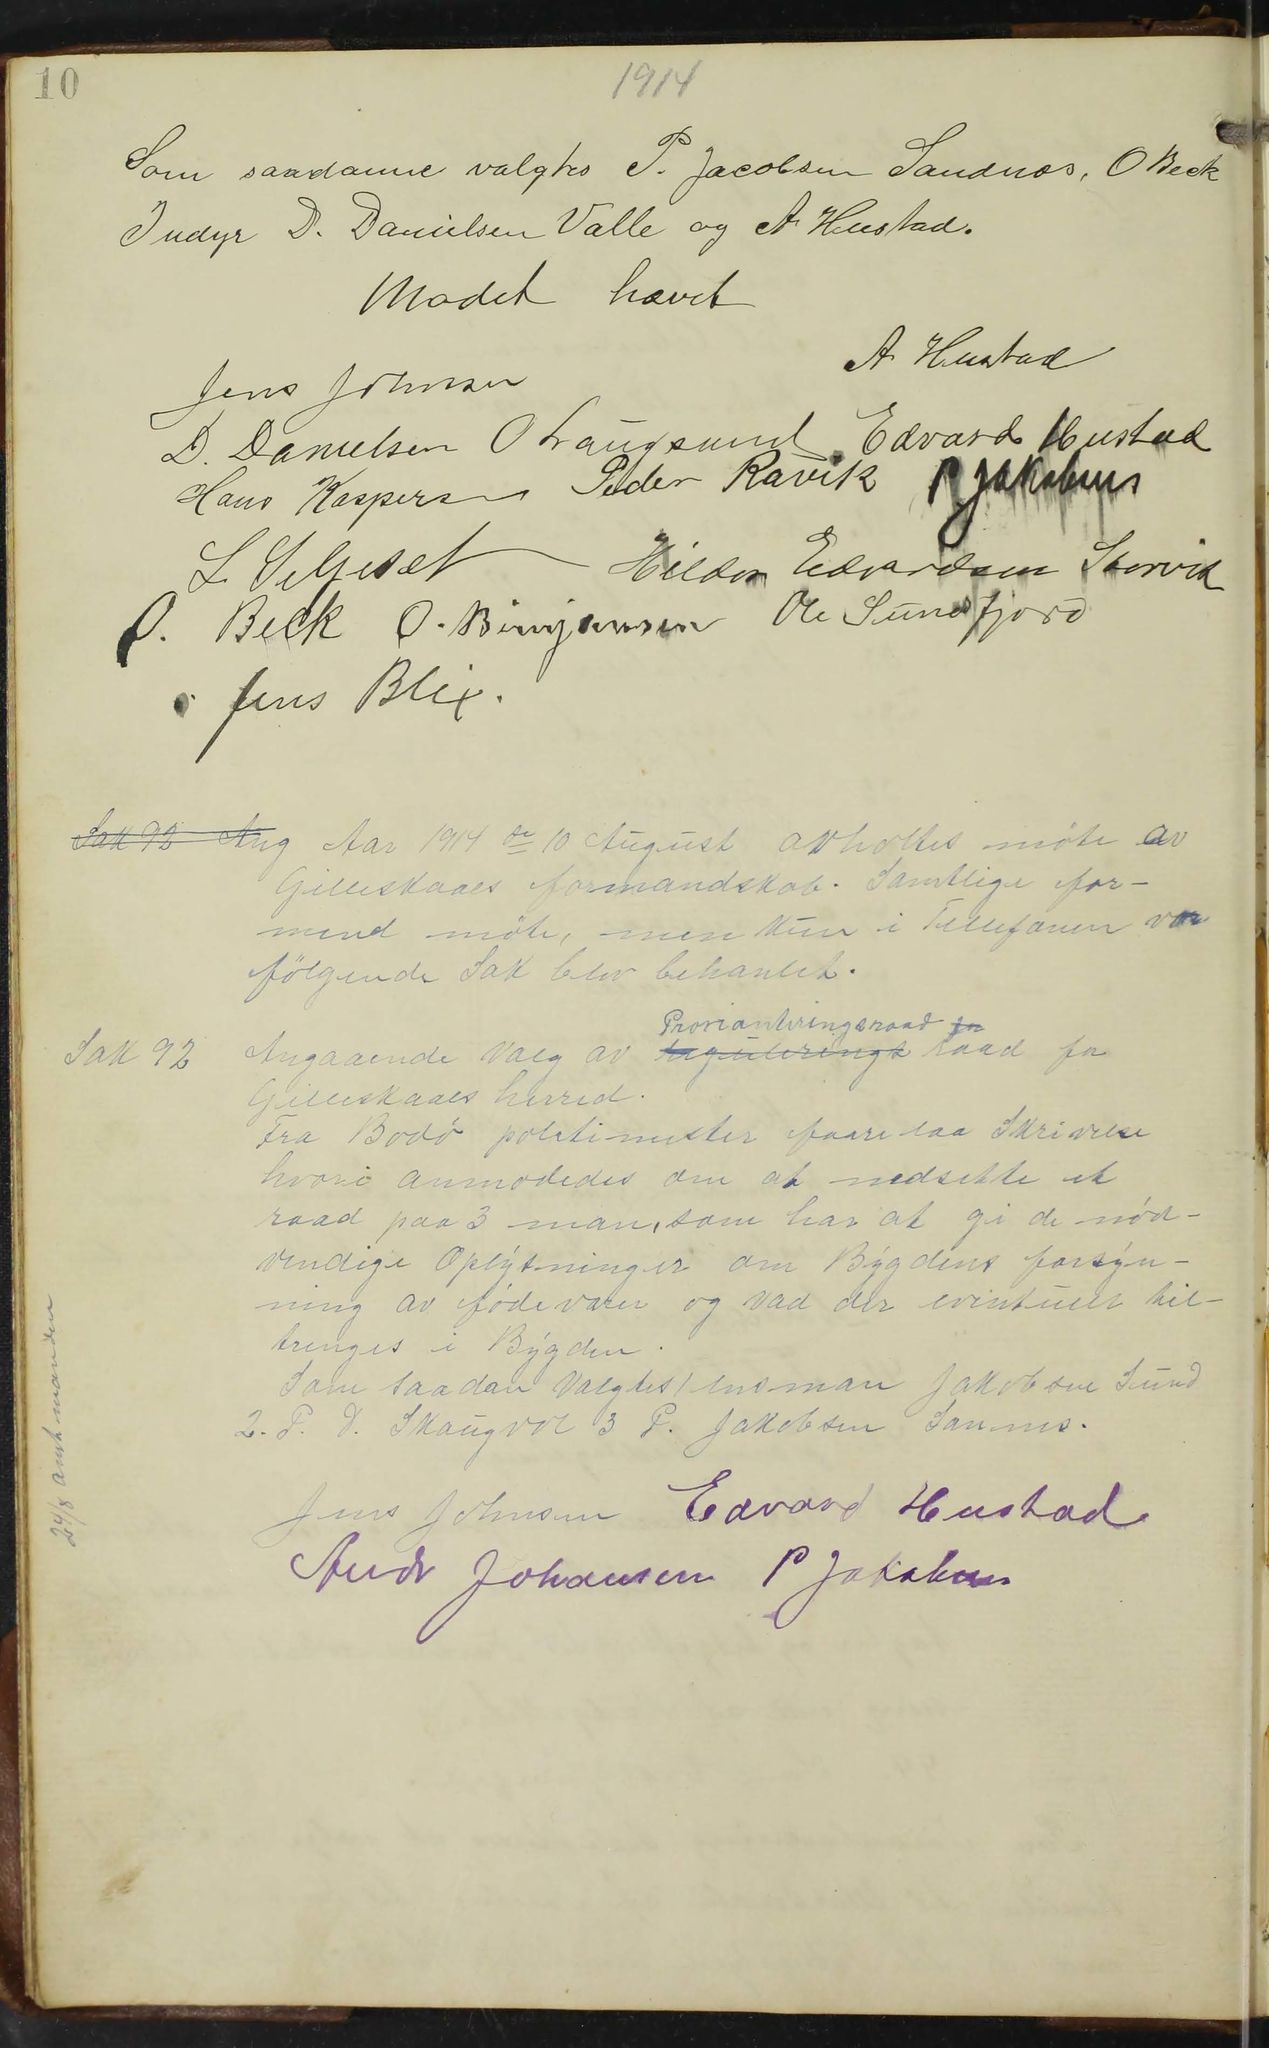 10
1914
Som saadanne valgtes P. Jacobsen Sandnæs, O Beck
Indyr D. Danielsen Valle og A Hustad.
Mødet hævet
A Hustad
Jens Johnsen
D. Danielsen O Laugsund Edvard Hustad
Hans Kaspersen Peder Røvik P Jakobsen
L Seljeset Hildor Edvardsen Storvik
O. Beck O. Binjamsen Ole Sundsfjord
Jens Blix.
Sak 92 Aug Aar 1914 de 10 August avholtes möte av
Gilleskaals formandskab. Samtlige for-
mend möte, men kun i Tellefonen
fölgende Sak blev behanlet.
Proviantiringsraad for
Sak 92 Angaaende Valg av regulerings raad for
Gilleskaals herred.
Fra Bodö politimester foorelaa Skrivelse
hvori anmodedes om at nedsette et
raad paa 3 man, som har at gi de nöd-
vendige Oplysninger om Bygdens forsyn-
ning av födevarer og vad der eventuelt til-
trenges i Bygden.
Som saadan Valgtes 1 lensman Jakobsen Sund
2. P. D. Skaugvol 3 P. Jakobsen Sannes.
24/8 amtmanden
Jens Johnsen Edvard Hustad
Andr Johansen P Jakobsen